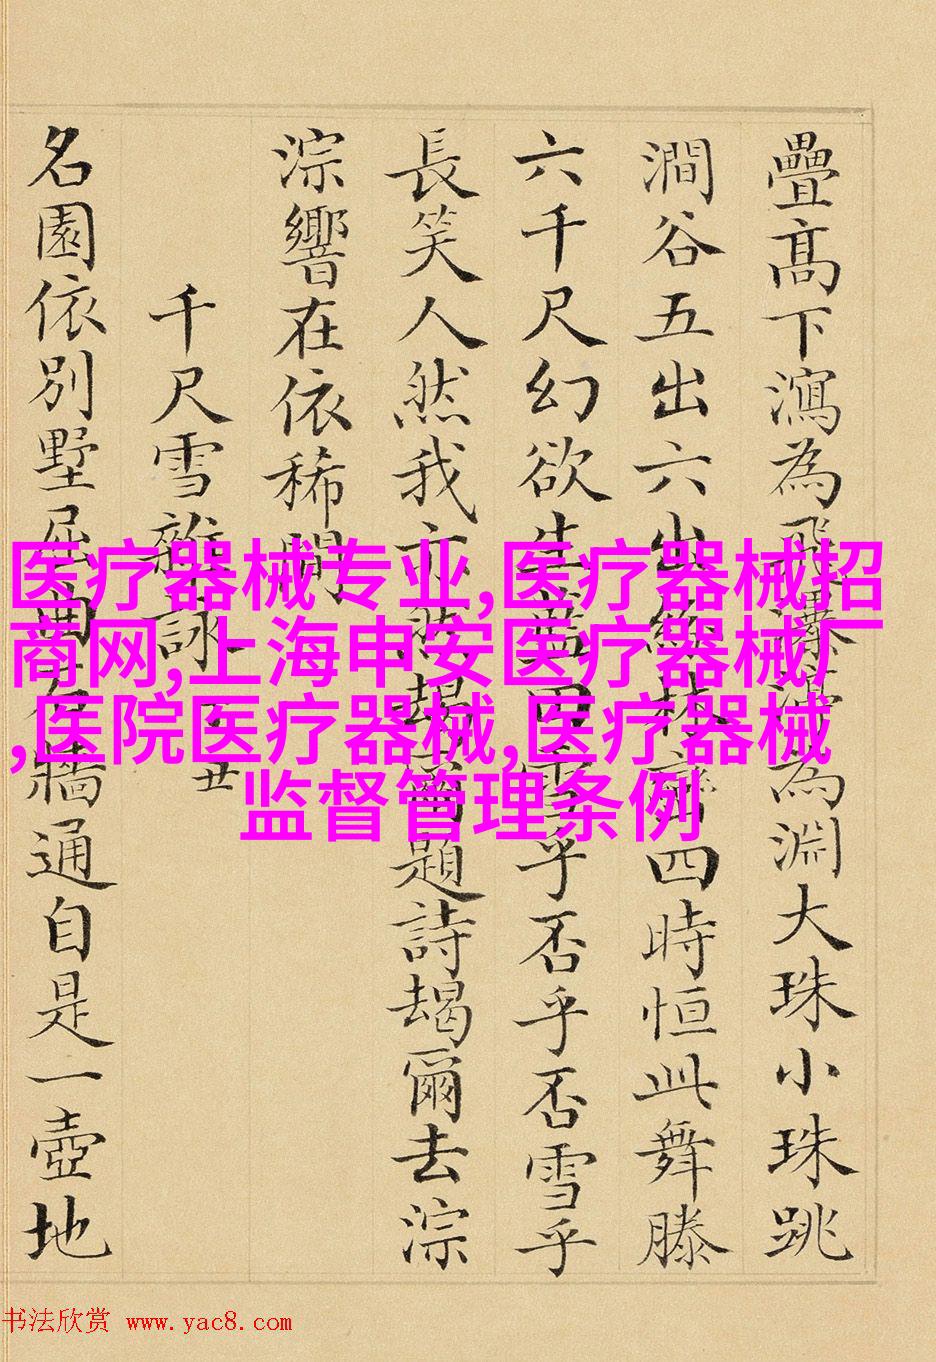 疊高下瀉為飛瀑漫為淵大珠小珠跳
澗谷五出六出緣林齊四時恒此舞滕
六千尺幻欲生當四雪乎否乎否雪乎
長笑人然我亦然朅爾題詩朅爾去淙
淙響在依稀聞
千尺雪雜詠 廿
名園依別墅屈曲石牆通自是一壺地
医疗器械专业,医疗器械招
商网,上海申安医疗器械厂
,医院医疗器械,医疗器械
监督管理条例
书法欣赏 www.yac8.com